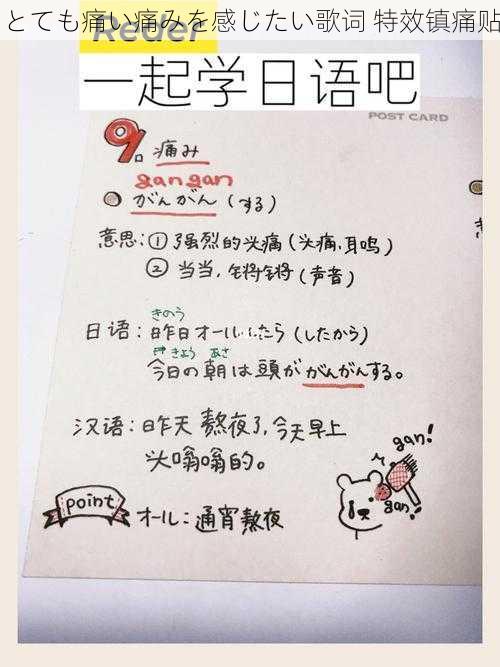 とても痛い痛みを感じたい歌词 特效镇痛贴
Reder
一起学日语吧
POST CARD
9. 痛み
gangan
がんがん (する)
意思: ① 强烈的头痛 (头痛,耳鸣)
② 当当, 锵锵 (声音)
きのう
日语: 昨日オールしたら (したから)
きょう あさ
今日の朝は頭ががんがんする。
汉语: 昨天熬夜了,今天早上
头嗡嗡的。
gan!
gan!
point オール: 通宵熬夜